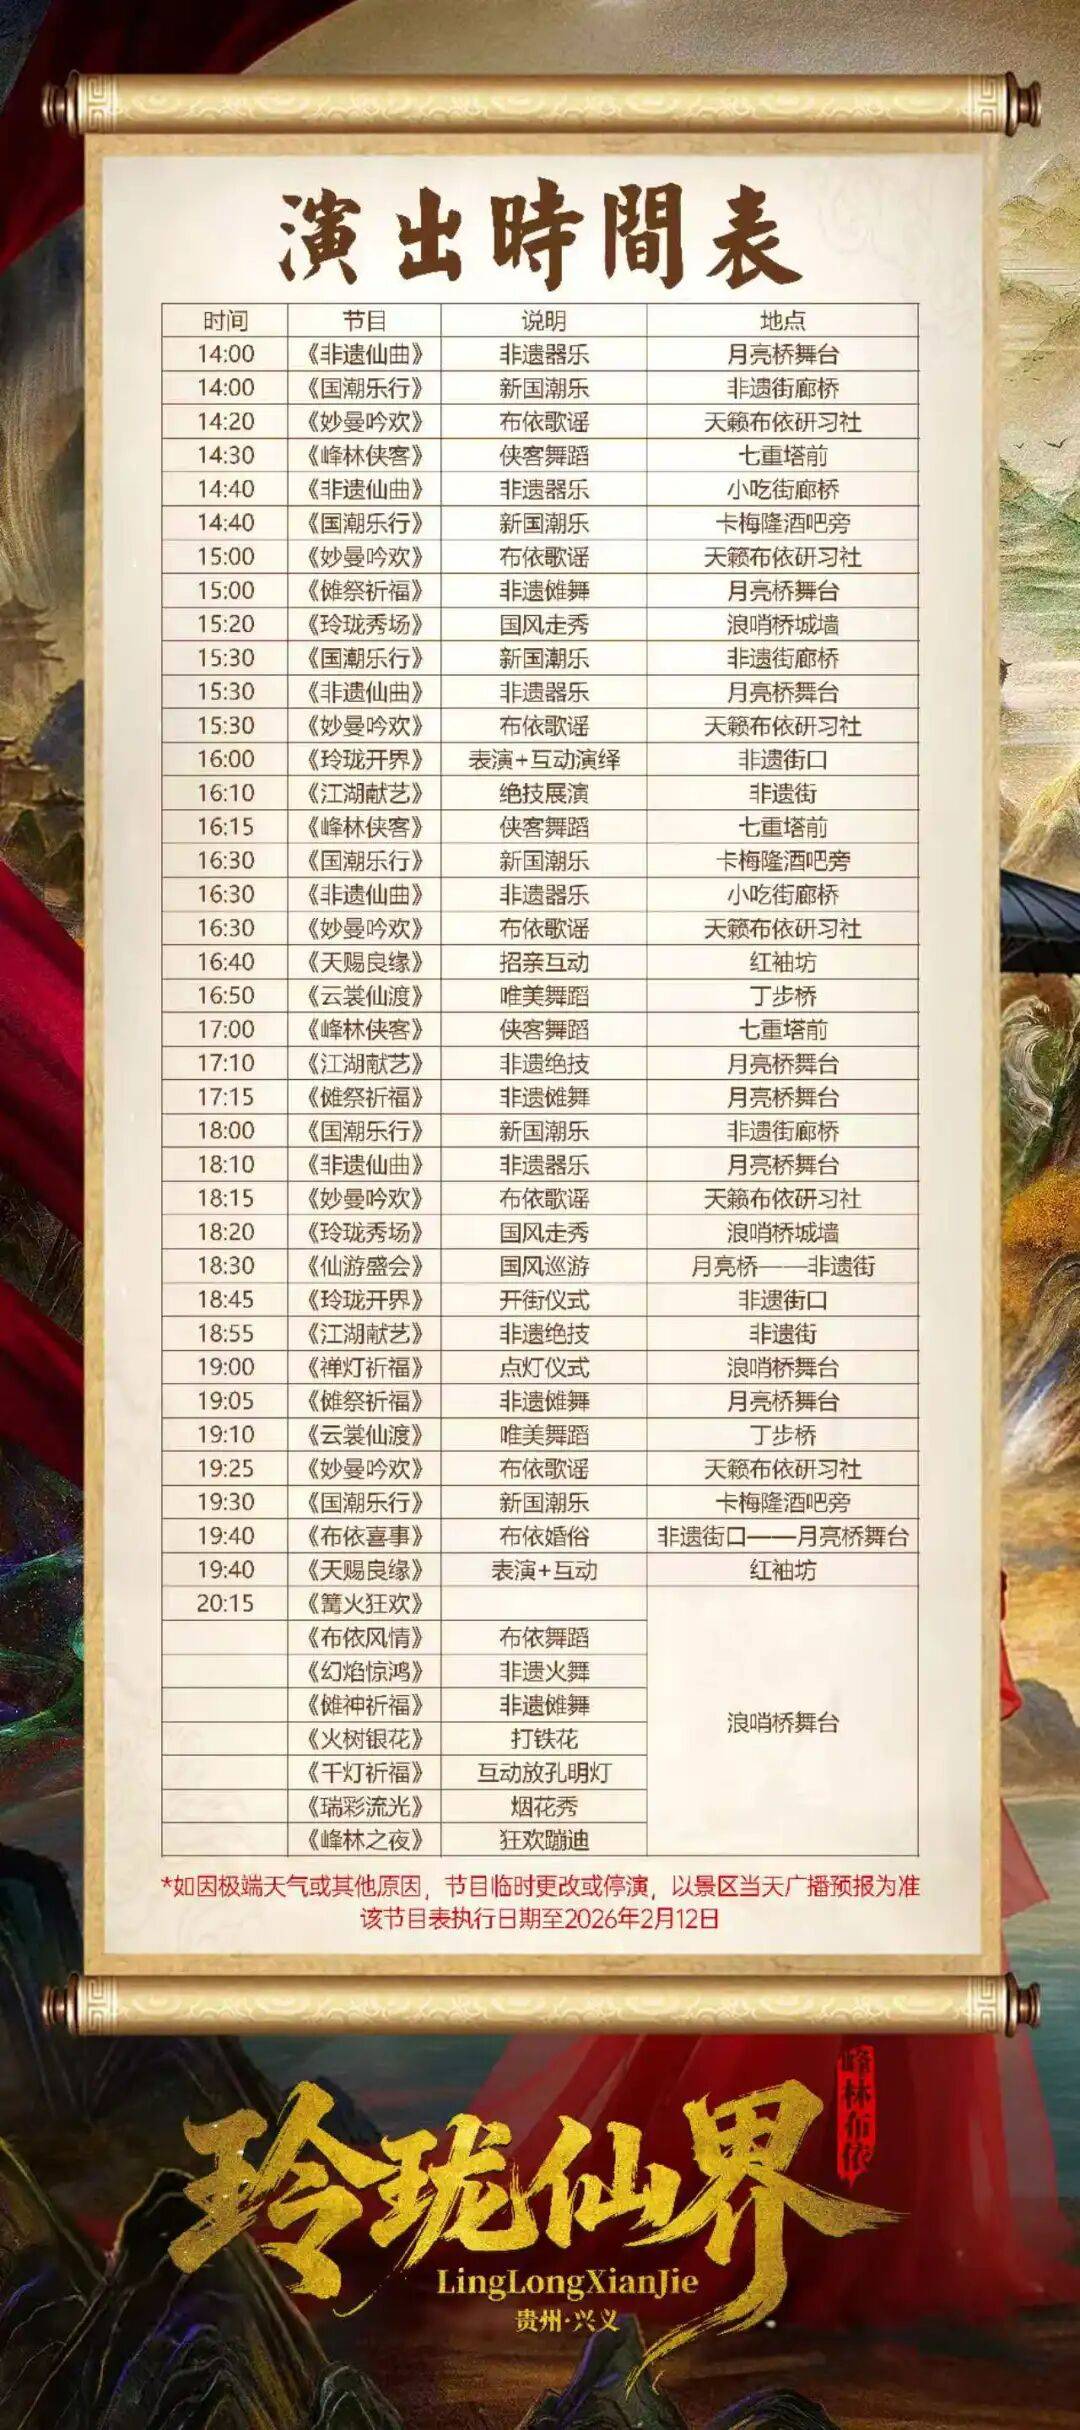 演出時間表
时间 节目 说明 地点
14:00 《非遗仙曲》 非遗器乐 月亮桥舞台
14:00 《国潮乐行》 新国潮乐 非遗街廊桥
14:20 《妙曼吟欢》 布依歌谣 天籁布依研习社
14:30 《峰林侠客》 侠客舞蹈 七重塔前
14:40 《非遗仙曲》 非遗器乐 小吃街廊桥
14:40 《国潮乐行》 新国潮乐 卡梅隆酒吧旁
15:00 《妙曼吟欢》 布依歌谣 天籁布依研习社
15:00 《傩祭祈福》 非遗傩舞 月亮桥舞台
15:20 《玲珑秀场》 国风走秀 浪哨桥城墙
15:30 《国潮乐行》 新国潮乐 非遗街廊桥
15:30 《非遗仙曲》 非遗器乐 月亮桥舞台
15:30 《妙曼吟欢》 布依歌谣 天籁布依研习社
16:00 《玲珑开界》 表演+互动演绎 非遗街口
16:10 《江湖献艺》 绝技展演 非遗街
16:15 《峰林侠客》 侠客舞蹈 七重塔前
16:30 《国潮乐行》 新国潮乐 卡梅隆酒吧旁
16:30 《非遗仙曲》 非遗器乐 小吃街廊桥
16:30 《妙曼吟欢》 布依歌谣 天籁布依研习社
16:40 《天赐良缘》 招亲互动 红袖坊
16:50 《云裳仙渡》 唯美舞蹈 丁步桥
17:00 《峰林侠客》 侠客舞蹈 七重塔前
17:10 《江湖献艺》 非遗绝技 月亮桥舞台
17:15 《傩祭祈福》 非遗傩舞 月亮桥舞台
18:00 《国潮乐行》 新国潮乐 非遗街廊桥
18:10 《非遗仙曲》 非遗器乐 月亮桥舞台
18:15 《妙曼吟欢》 布依歌谣 天籁布依研习社
18:20 《玲珑秀场》 国风走秀 浪哨桥城墙
18:30 《仙游盛会》 国风巡游 月亮桥——非遗街
18:45 《玲珑开界》 开街仪式 非遗街口
18:55 《江湖献艺》 非遗绝技 非遗街
19:00 《禅灯祈福》 点灯仪式 浪哨桥舞台
19:05 《傩祭祈福》 非遗傩舞 月亮桥舞台
19:10 《云裳仙渡》 唯美舞蹈 丁步桥
19:25 《妙曼吟欢》 布依歌谣 天籁布依研习社
19:30 《国潮乐行》 新国潮乐 卡梅隆酒吧旁
19:40 《布依喜事》 布依婚俗 非遗街口——月亮桥舞台
19:40 《天赐良缘》 表演+互动 红袖坊
20:15 《篝火狂欢》
《布依风情》 布依舞蹈
《幻焰惊鸿》 非遗火舞
《傩神祈福》 非遗傩舞
浪哨桥舞台
《火树银花》 打铁花
《千灯祈福》 互动放孔明灯
《瑞彩流光》 烟花秀
《峰林之夜》 狂欢蹦迪
*如因极端天气或其他原因，节目临时更改或停演，以景区当天广播预报为准
该节目表执行日期至2026年2月12日
峰林布依
玲珑仙界
LingLongXianJie
贵州·兴义